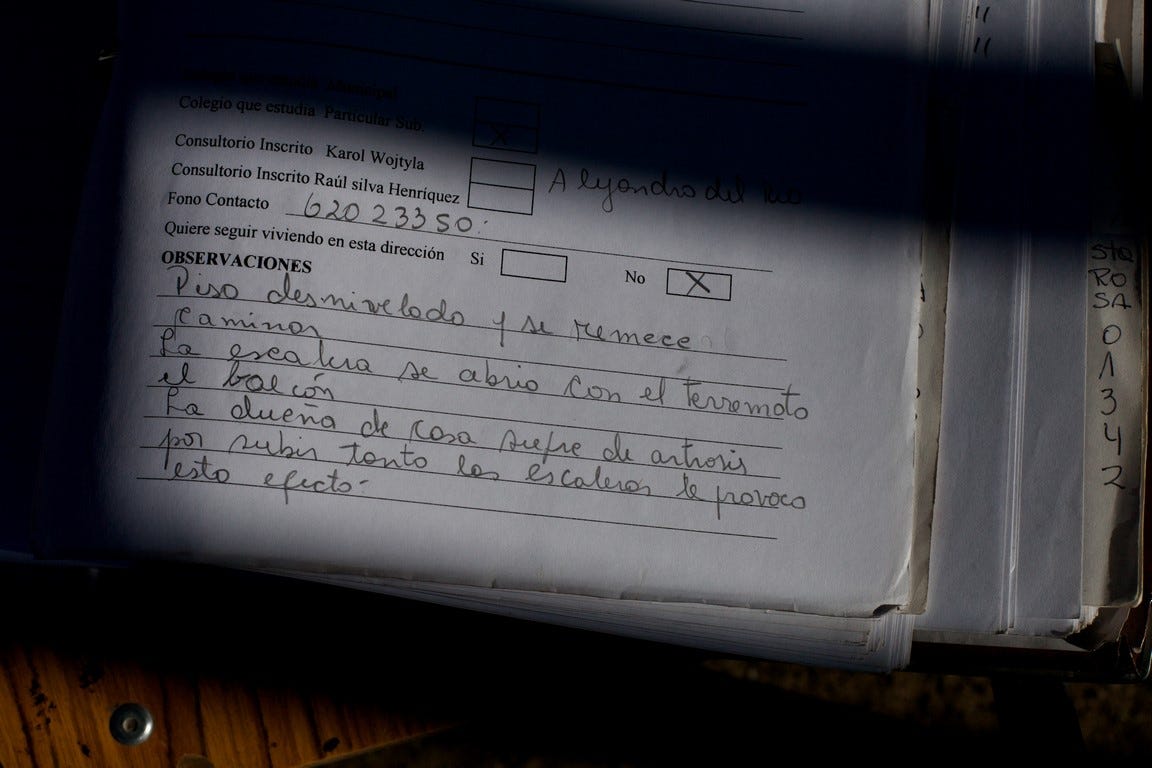 Municipal
Colegio que estudia Particular Sub. X
Consultorio Inscrito Karol Wojtyla
Alejandro del Rio
Consultorio Inscrito Raúl silva Henríquez
Fono Contacto 62023350.
Quiere seguir viviendo en esta dirección Si No X
OBSERVACIONES
Piso desnivelado y se remece
caminar
La escalera se abrio con el terremoto
el balcón
La dueña de casa sufre de artrosis
por subir tanto las escaleras le provoco
esto efecto-
" 
"
sta
RO
SA
0
1
3
4
2